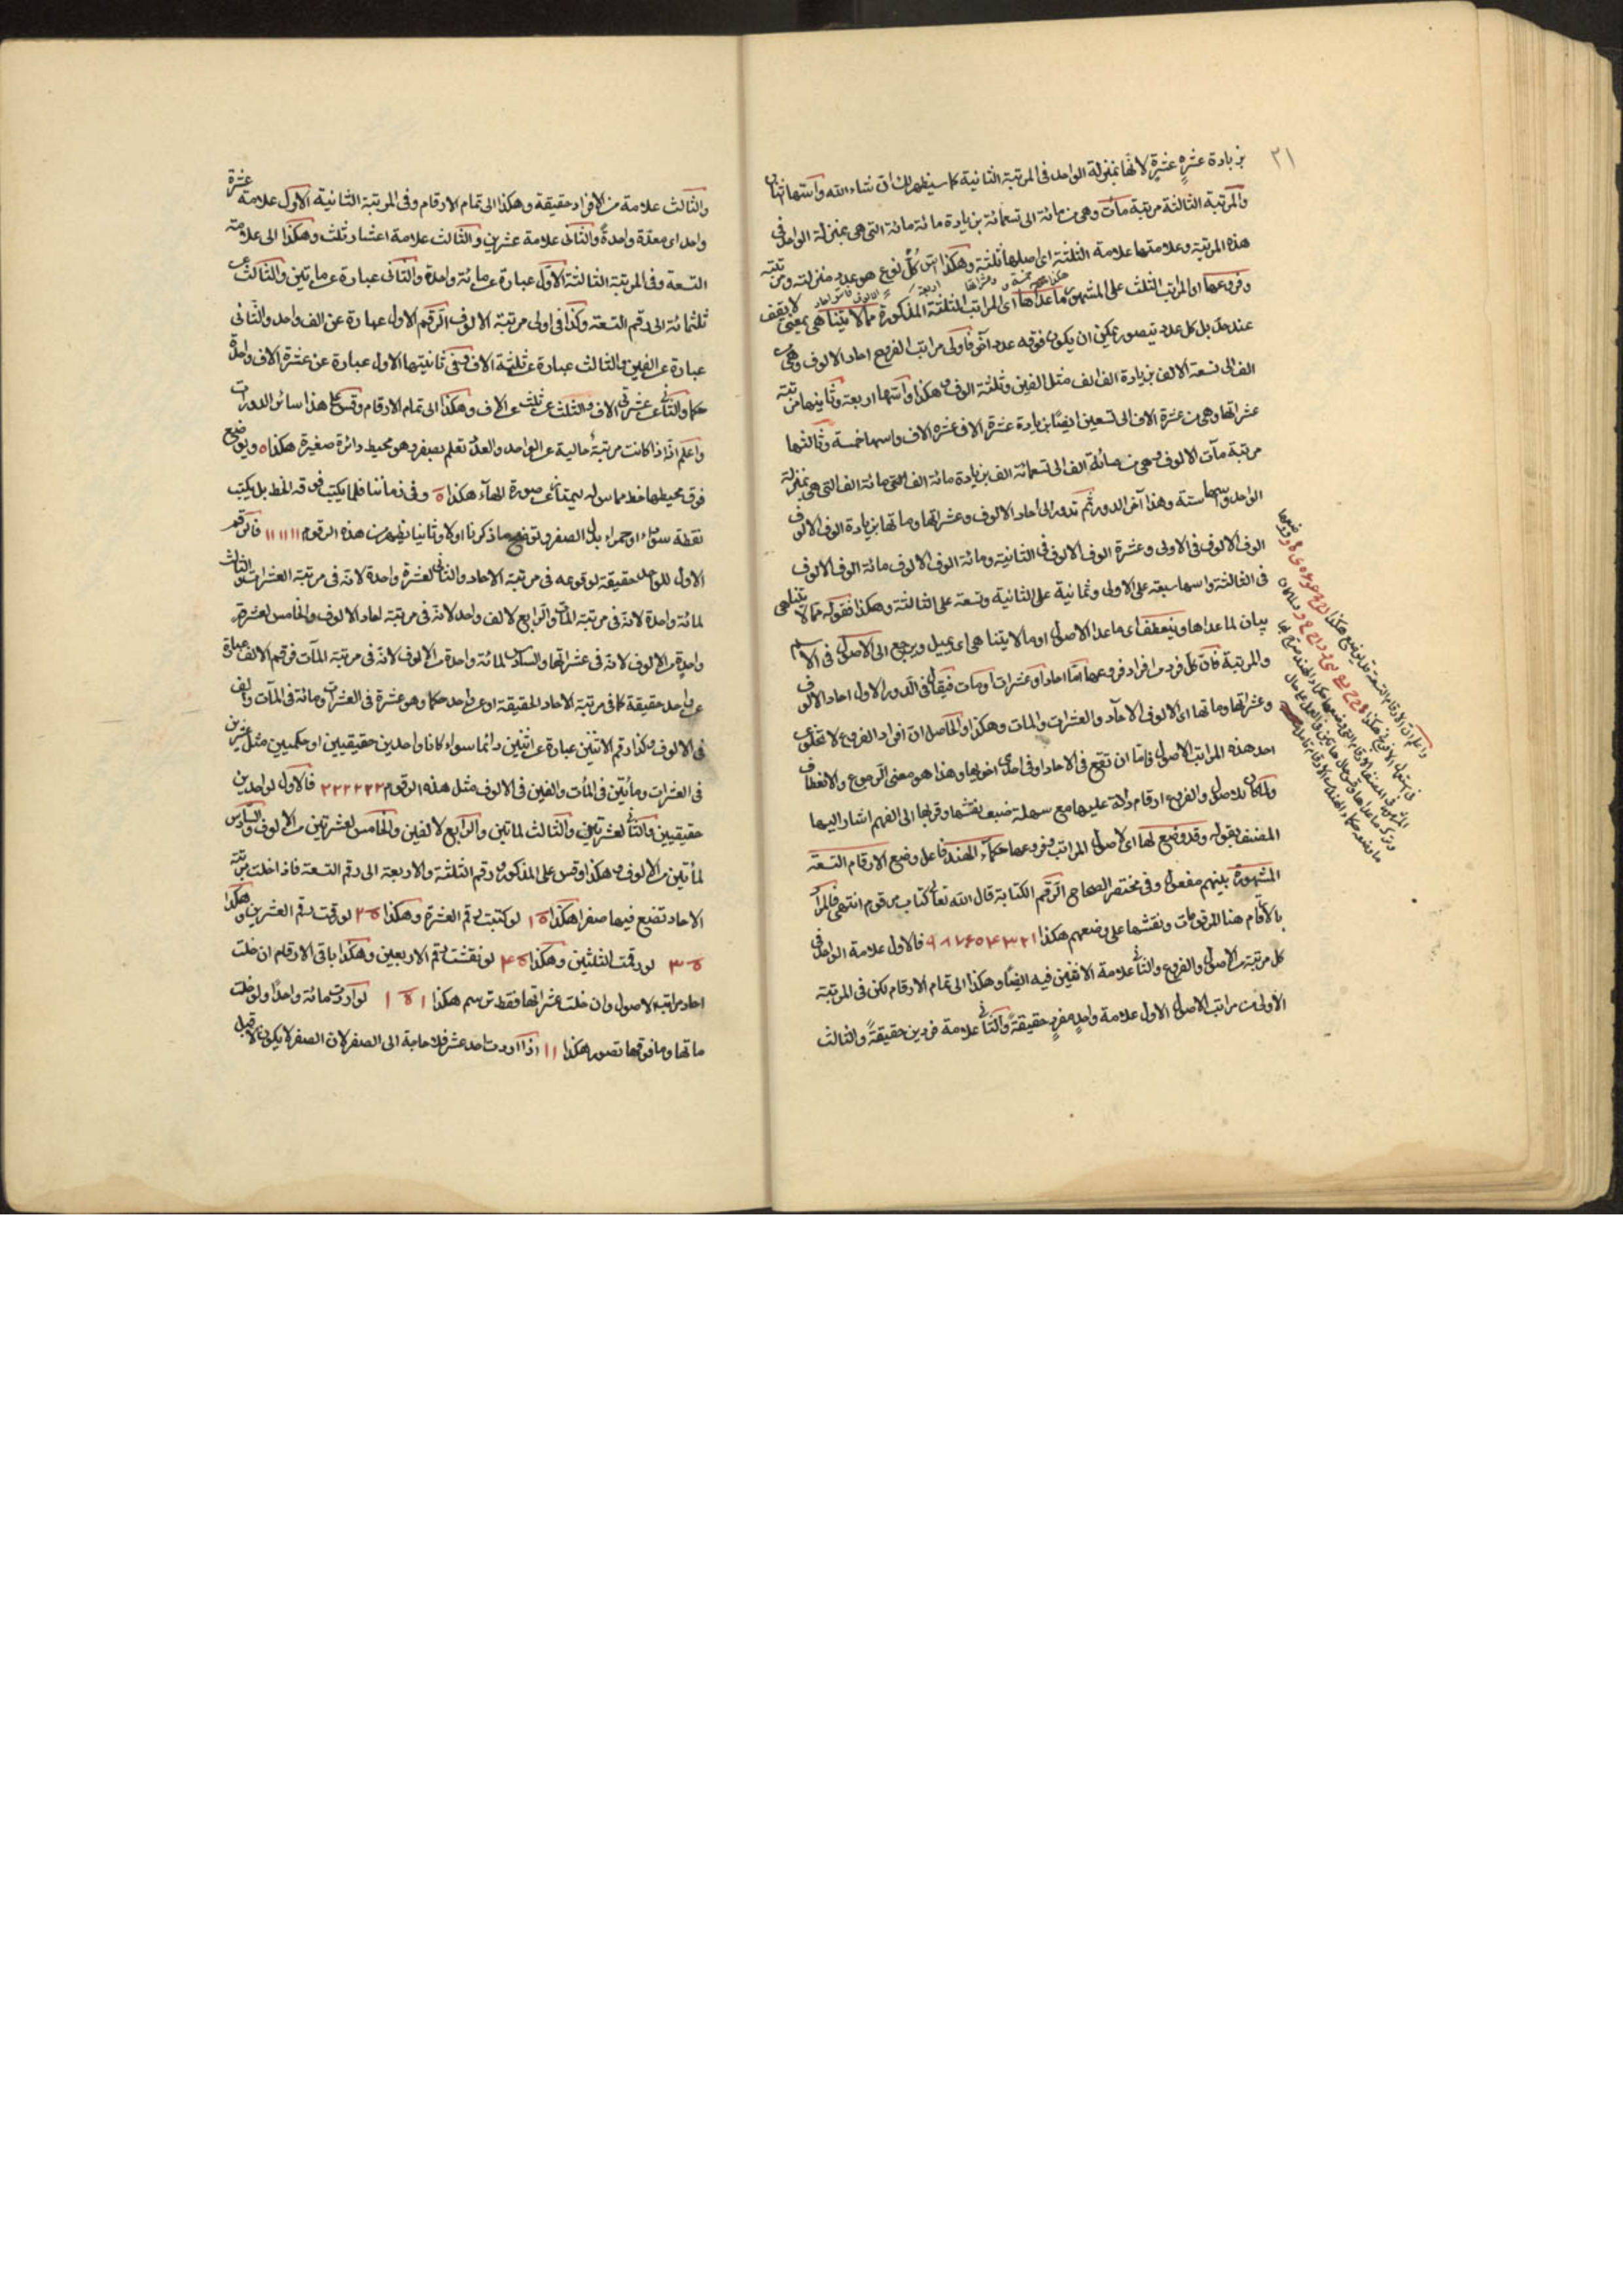 ٢١
بزيادة عشرة عشرة لانها بمنزلة الواحد في المرتبة الثانية كما سيظهر لك ان شاء الله واسها اثنان
والمرتبة الثالثة مرتبة مآت وهي من مائة الى تسعمائة بزيادة مائة مائة التي هي بمنزلة الواحد في
هذه المرتبة وعلامتها علامة الثلثة اى اصلها ثلثة وهكذا اس كل نوع هو عدد منزلته ومرتبته
وفروعها اى المراتب الثلث على المشهور ما عداها اى المراتب الثلثة المذكورة مما لا يتناهى بمعنى لا يقف
عند حد بل كل عدد يتصور يمكن ان يكون فوقه عدد آخر فاولى مراتب الفروع احاد الالوف وهي من
الف الى تسعة الاف بزيادة الف الف مثل الفين وثلثة الوف وهكذا واسها اربعة وثانيها مرتبة
عشراتها وهي من عشرة الاف الى تسعين ايضا بزيادة عشرة الاف عشرة الاف واسها خمسة وثالثها
مرتبة مآت الالوف وهي من مائة الف الى تسعمائة الف بزيادة مائة الف التي هي بمنزلة
الواحد واسها ستة وهذا آخر الدور ثم تدور الى احاد الالوف وعشراتها وماتها بزيادة الوف الالوف
الوف الالوف في الاولى وعشرة الوف الالوف في الثانية ومائة الوف الالوف مائة الوف الالوف
في الثالثة واسها سبعة على الاولى وثمانية على الثانية وتسعة على الثالثة وهكذا فقوله مما لا يتناهى
بيان لما عداها وينعطف اى ما عدا الاصول او ما لا يتناهى اى يميل ويرجع الى الاصول في الاسم
والمرتبة فان كل فرد من افراد فروعها اما احاد او عشرات او مآت فيقال في الدور الاول احاد الالوف
وعشراتها وماتها اى الالوف الاحاد والعشرات والمآت وهكذا والحاصل ان افراد الفروع لا تخلو عن
احد هذه المراتب الاصول فاما ان تقع في الاحاد او في احدى اخويها وهذا هو معنى الرجوع والانعطاف
ولما كان للاصول والفروع ارقام دالة عليها مع سهلة ضبط نقشها وقربها الى الفهم اشار اليها
المصنف بقوله وقد وضع لها اى لاصول المراتب وفروعها حكماء الهند فاعل وضع الارقام التسعة
المشهورة بينهم مفعول وفي مختصر الصحاح الرقم الكتابة قال الله تعالى كتاب مرقوم انتهى فالمراد
بالارقام هنا المرقومات ونقشها على وضعهم هكذا ١ ٢ ٣ ۴ ٥ ۶ ٧ ٨ ٩ فالاول علامة الواحد في
كل مرتبة من الاصول والفروع والثانى علامة الاثنين فيه ايضا وهكذا الى تمام الارقام لكن في المرتبة
الاولى من مراتب الاصول الاول علامة واحد مفرد حقيقة والثانى علامة فردين حقيقة والثالث
والثالث علامة من الافراد حقيقة وهكذا الى تمام الارقام وفي المرتبة الثانية الاول علامة عشرة
واحد اى معدة واحدة والثانى علامة عشرين والثالث علامة اعشار ثلث وهكذا الى علامة
التسعة وفي المرتبة الثالثة الاول عبارة عن مائة واحدة والثانى عبارة عن ماتين والثالث عن
ثلثمائة الى رقم التسعة وكذا في اولى مرتبة الالوف الرقم الاول عبارة عن الف واحد والثانى
عبارة عن الفين والثالث عبارة عن ثلثة الاف وفي ثانيتها الاول عبارة عن عشرة الاف واحدة
حكما والثانى عن عشرتى الاف والثلث عن ثلث عن الاف وهكذا الى تمام الارقام وقس على هذا سائر الدورات
واعلم انه اذا كانت مرتبة خالية عن الواحد والعدد تعلم بصفر وهو محيط دائرة صغيرة هكذا ٥ ويوضع
فوق محيطها خط مماس له ليمتاز عن صورة الهاء هكذا ō وفي زماننا فلما يكتب فوقه الخط بل يكتب
نقطة سوداء او حمراء بدل الصفر وتوضيح ما ذكرنا اولا وثانيا يظهر من هذه الرقوم ١١١١١١ فالرقم
الاول للواحد حقيقة لوقوعه في مرتبة الاحاد والثانى لعشرة واحدة لانه في مرتبة العشرات والثالث
لمائة واحدة لانه في مرتبة المآت والرابع لالف واحد لانه في مرتبة احاد الالوف والخامس لعشرة
واحدة من الالوف لانه في عشراتها والسادس لمائة واحدة من الالوف لانه في مرتبة المآت فرقم الالف عبارة
عن واحد حقيقة كما في مرتبة الاحاد الحقيقة او عن واحد حكما وهو عشرة في العشرات ومائة في المآت والف
في الالوف وكذا رقم الاثنين عبارة عن اثنين دائما سواء كانا واحدين حقيقيين او حكميين مثل عشرين
في العشرات ومأتين في المآت والفين في الالوف مثل هذه الرقوم ٢٢٢٢٢٢ فالاول لواحدين
حقيقيين والثانى لعشرتين والثالث لماتين والرابع لالفين والخامس لعشرتين من الالوف والسادس
لمأتين من الالوف وهكذا وقس على المذكور رقم الثلثة والاربعة الى رقم التسعة فاذا خلت مرتبة
الاحاد تضع فيها صفرا هكذا ١ō لو كتبت رقم العشرة وهكذا ٢ō لو رقمت رقم العشرين وهكذا
٣ō لو رقمت الثلثين وهكذا ۴ō لو نقشت رقم الاربعين وهكذا باقى الارقام ان خلت
احاد مراتب الاصول وان خلت عشراتها فقط ترسم هكذا ١ō١ لو اردت مائة واحدا ولو خلت
ماتها وما فوقها تصور هكذا ١١ اذا اردت احد عشر فلا حاجة الى الصفر لان الصفر لا يكون الا قبل